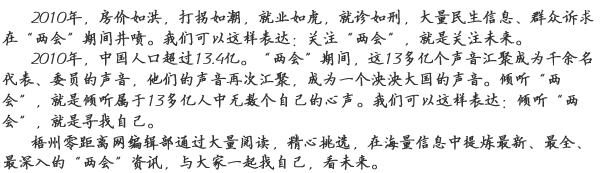 2010年，房价如洪，打拐如潮，就业如虎，就诊如刑，大量民生信息、群众诉求
在“两会”期间井喷。我们可以这样表达：关注“两会”，就是关注未来。
2010年，中国人口超过13.4亿。“两会”期间，这13多亿个声音汇聚成为千余名
代表、委员的声音，他们的声音再次汇聚，成为一个泱泱大国的声音。倾听“两
会”，就是倾听属于13多亿人中无数个自己的心声。我们可以这样表达：倾听“两
会”，就是寻找自己。
梧州零距离网编辑部通过大量阅读，精心挑选，在海量信息中提炼最新、最全、
最深入的“两会”资讯，与大家一起找自己，看未来。